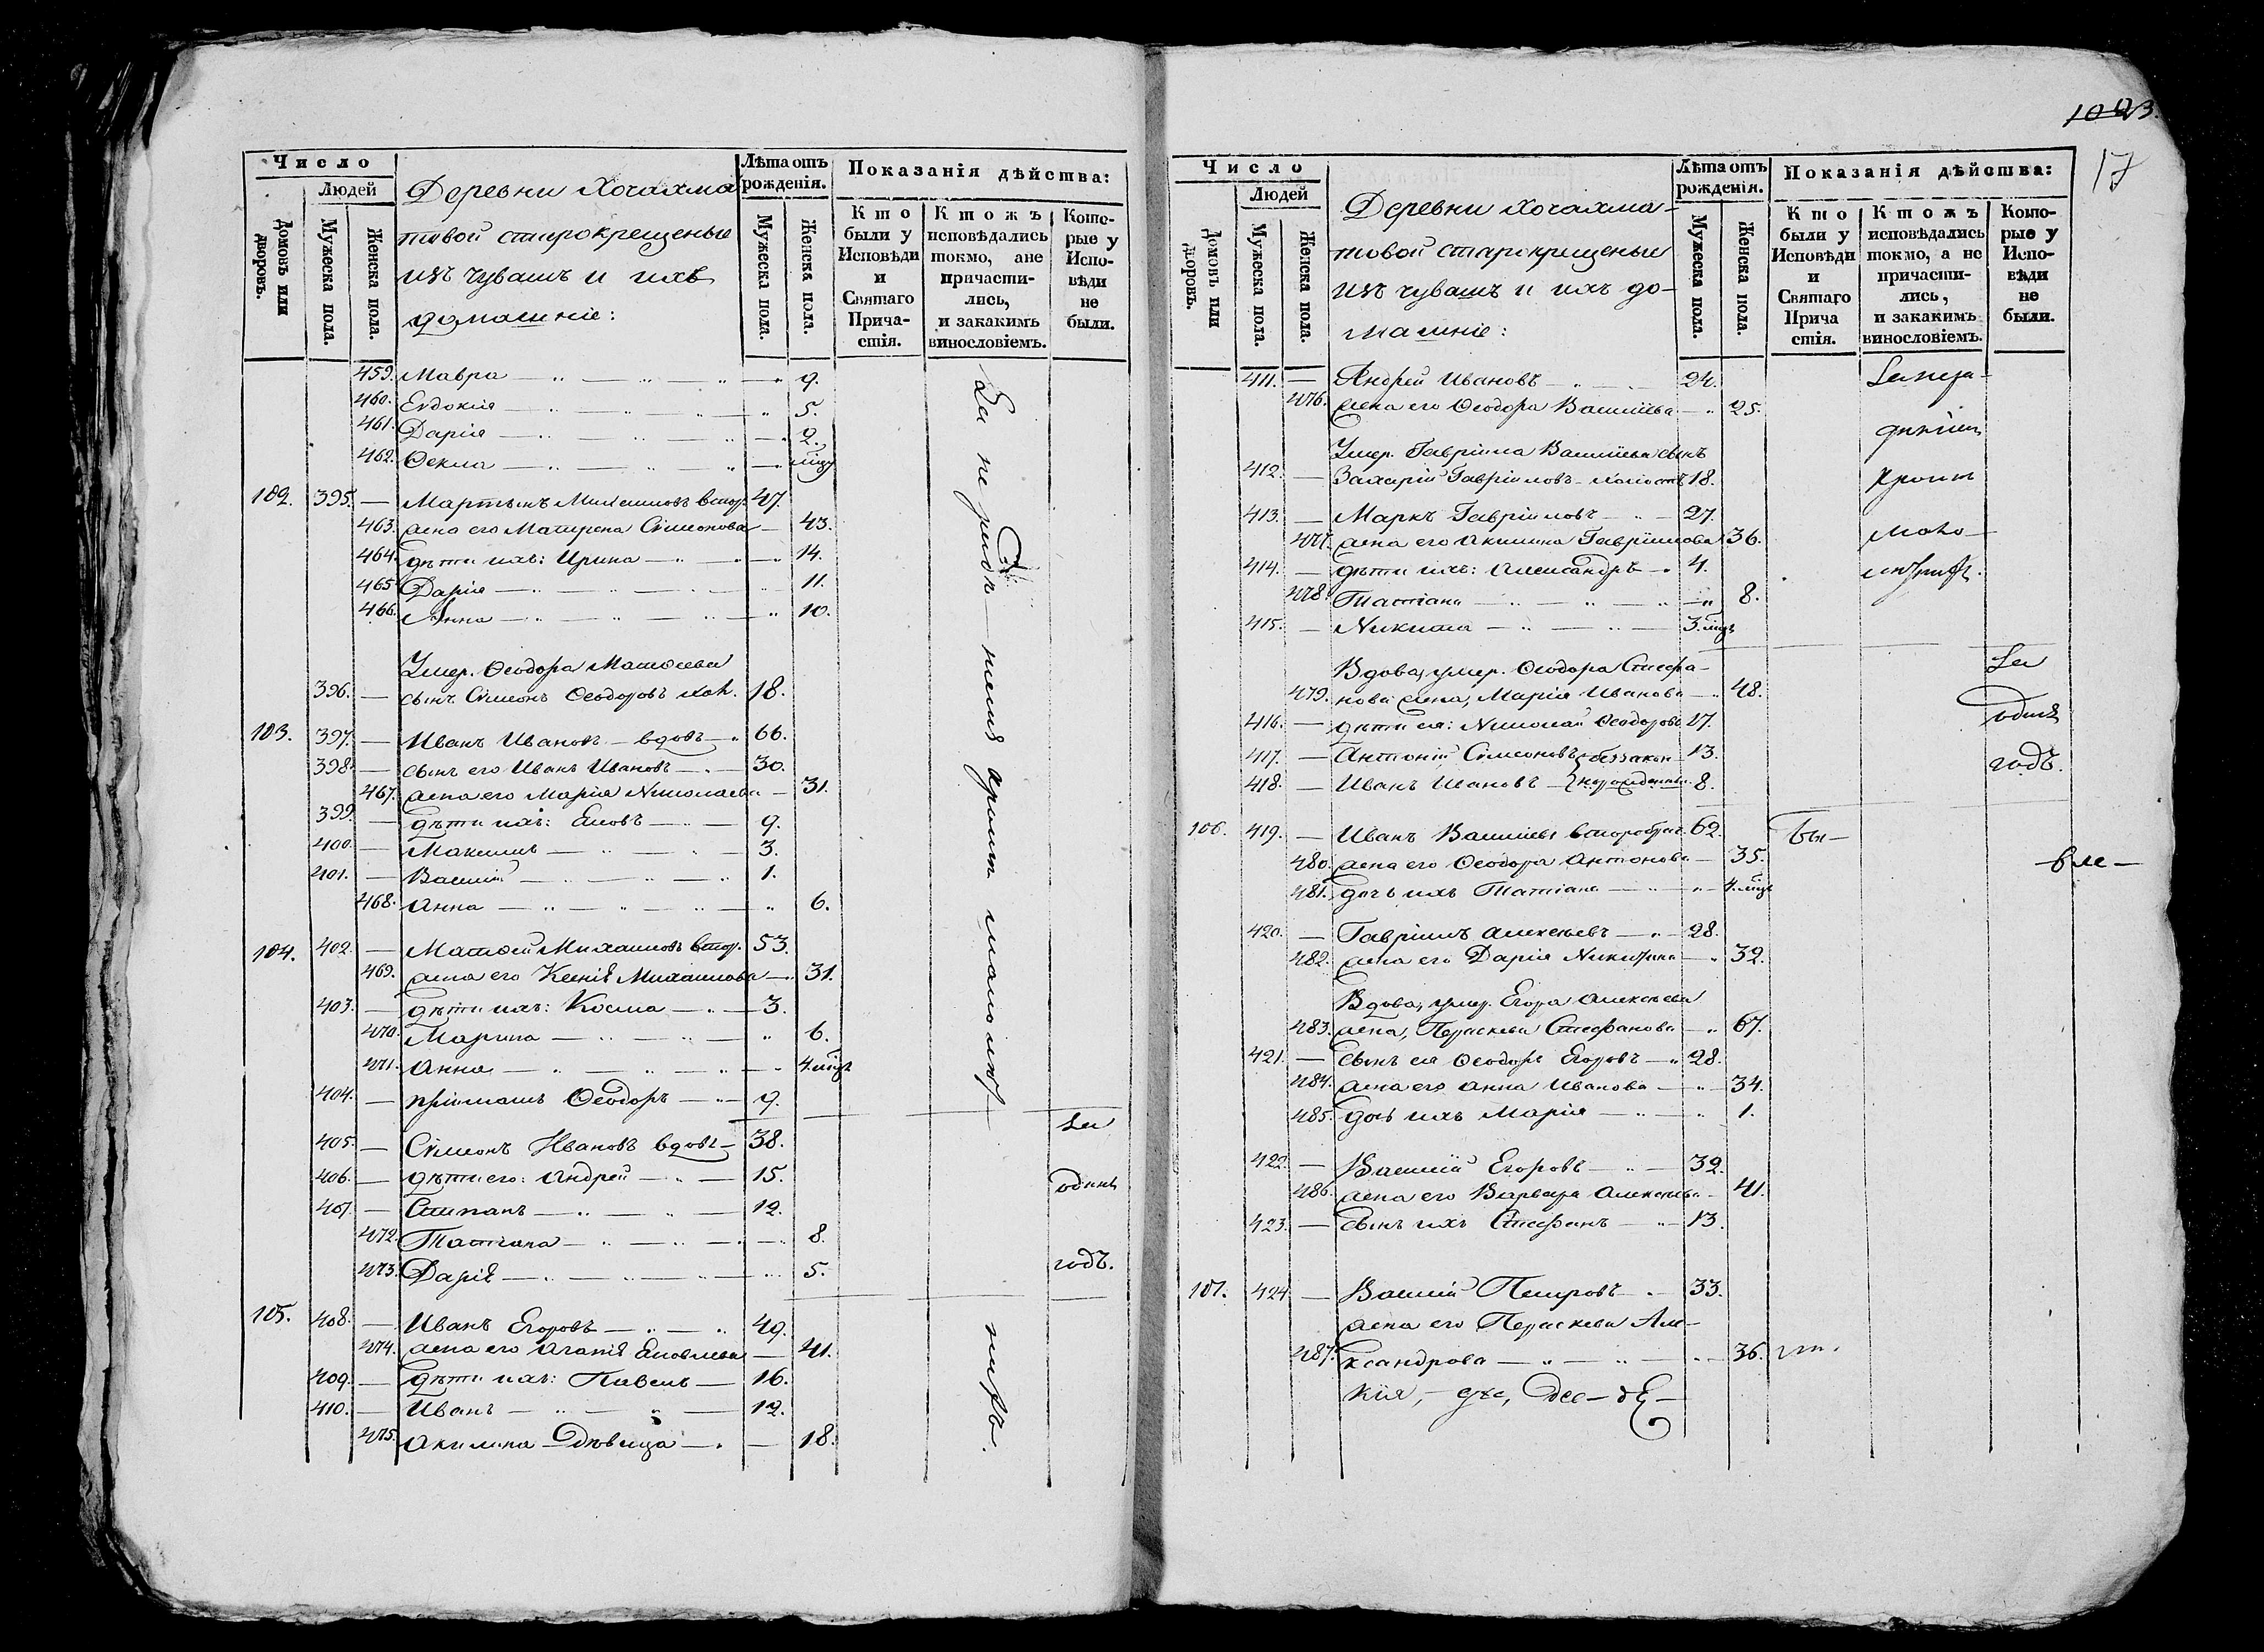 Число
Людей
Домовъ или дворовъ.
Мужеска пола.
Женска пола.
Деревни Хочахма
товой старокрещеные
изъ чувашъ и ихъ
домашніе:
Лѣта отъ
рожденія.
Мужеска пола.
Женска пола.
Показанія дѣйства:
Кто
были у
Исповѣди
и
Святаго
Прича-
стія.
Ктожъ
исповѣдались
токмо, ане
причасти-
лись,
и закакимъ
винословіемъ.
Кото-
рые у
Испо-
вѣди
не
были.
459. Мавра 9.
460. Евдокія 5.
461. Дарія 2.
462. Ѳекла
102. 395. — Мартынъ 47.
463. жена его Матрена Сѵмеонова — 43.
464. дѣти ихъ: Ирина 14.
465. Дарія 11.
466. Анна 10.
Умер. Ѳеодора Матѳеева
396. — сынъ Сѵмеонъ Ѳеодоровъ хол. 18.
103. 397. — Иванъ Ивановъ — вдовъ 66.
398. — сынъ его Иванъ Ивановъ 30.
467. жена его Марія Николаева — 31.
399. — дѣти ихъ: Іаковъ 9.
400. — Максимъ 3.
401. — Василій 1.
468. Анна 6.
104. 402. — Матѳей Михаиловъ втор. 53.
469. жена его Ксенія Михаилова — 31.
403. — дѣти ихъ: Косма 3.
470. Марина 6.
471. Анна 4. мцъ
404. — пріимашъ Ѳеодоръ 9.
405. — Сѵмеонъ Ивановъ вдовъ — 38.
406. — дѣти его: Андрей 15.
407. — Степанъ 12.
472. Татіана 8.
473. Дарія 5.
105. 408. — Иванъ Егоровъ 49.
474. жена его Агапія Іаковлева — 41.
409. — дѣти ихъ: Павелъ — 16.
410. — Иванъ 12.
475. Акилина — дѣвица 18.
За
одинъ
годъ.
1023.
17
Число
Людей
Домовъ или дворовъ.
Мужеска пола.
Женска пола.
Деревни Хочахма-
товой старокрещеные
изъ чувашъ и ихъ до-
машніе:
Лѣта отъ
рожденія.
Мужеска пола.
Женска пола.
Показанія дѣйства:
Кто
были у
Исповѣди
и
Святаго
Прича
стія.
Ктожъ
исповѣдались
токмо, а не
причасти-
лись,
и закакимъ
винословіемъ.
Кото-
рые у
Испо-
вѣди
не
были.
411. — Андрей Ивановъ 24.
476. жена его Ѳеодора Васильева 25.
Умер. Гавріила Васильева сынъ
412. — Захарій Гавріиловъ — холостъ 18.
413. — Маркъ Гавріиловъ 27.
477. жена его Акилина Гавріилова 36.
414. — дѣти ихъ: Александръ 4.
478. Татіана 8.
415. — Никита 3. мцъ
Вдова, умер. Ѳеодора Стефа-
479. нова жена, Марія Иванова 48.
416. — дѣти ея: Николай Ѳеодоровъ 17.
417. — Антоній Сѵмеоновъ беззакон 13.
418. — Иванъ Ивановъ норожденные 8.
За
одинъ
годъ.
106. 419. — Иванъ Васильевъ второбрач. 62. Бы—
480. жена его Ѳеодора Антонова 35.
481. дочь ихъ Татіана 4. мцъ
420. — Гавріилъ Алексѣевъ 28.
482. жена его Дарія Никитина 32.
Вдова, умер. Егора Алексѣева
483. жена, Параскева Стефанова 67.
421. — сынъ ея Ѳеодоръ Егоровъ 28.
484. жена его Анна Иванова 34.
485. дочь ихъ Марія 1.
422. — Василій Егоровъ 32.
486. жена его Варвара Алексѣева 41.
423. — сынъ ихъ Стефанъ 13.
107. 424. — Василій Петровъ 33.
жена его Параскева Але-
487. ксандрова 36.